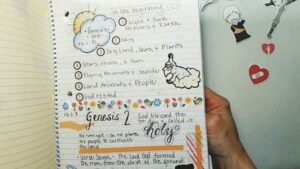 In the beginning
① Light & Dark
Heavens & Earth
Genesis
One
② Sky
③ Dry Land, Seas, & Plants
④ Stars, moon, & Sun
⑤ Flying Animals & Sealife
⑥ Land Animals & People
⑦ God rested
Genesis 2
God blessed the
7th day & called it
holy
No rain yet - so no plants
No people to cultivate
the land
Verse Seven - The Lord God formed
the man from the dust of the ground.